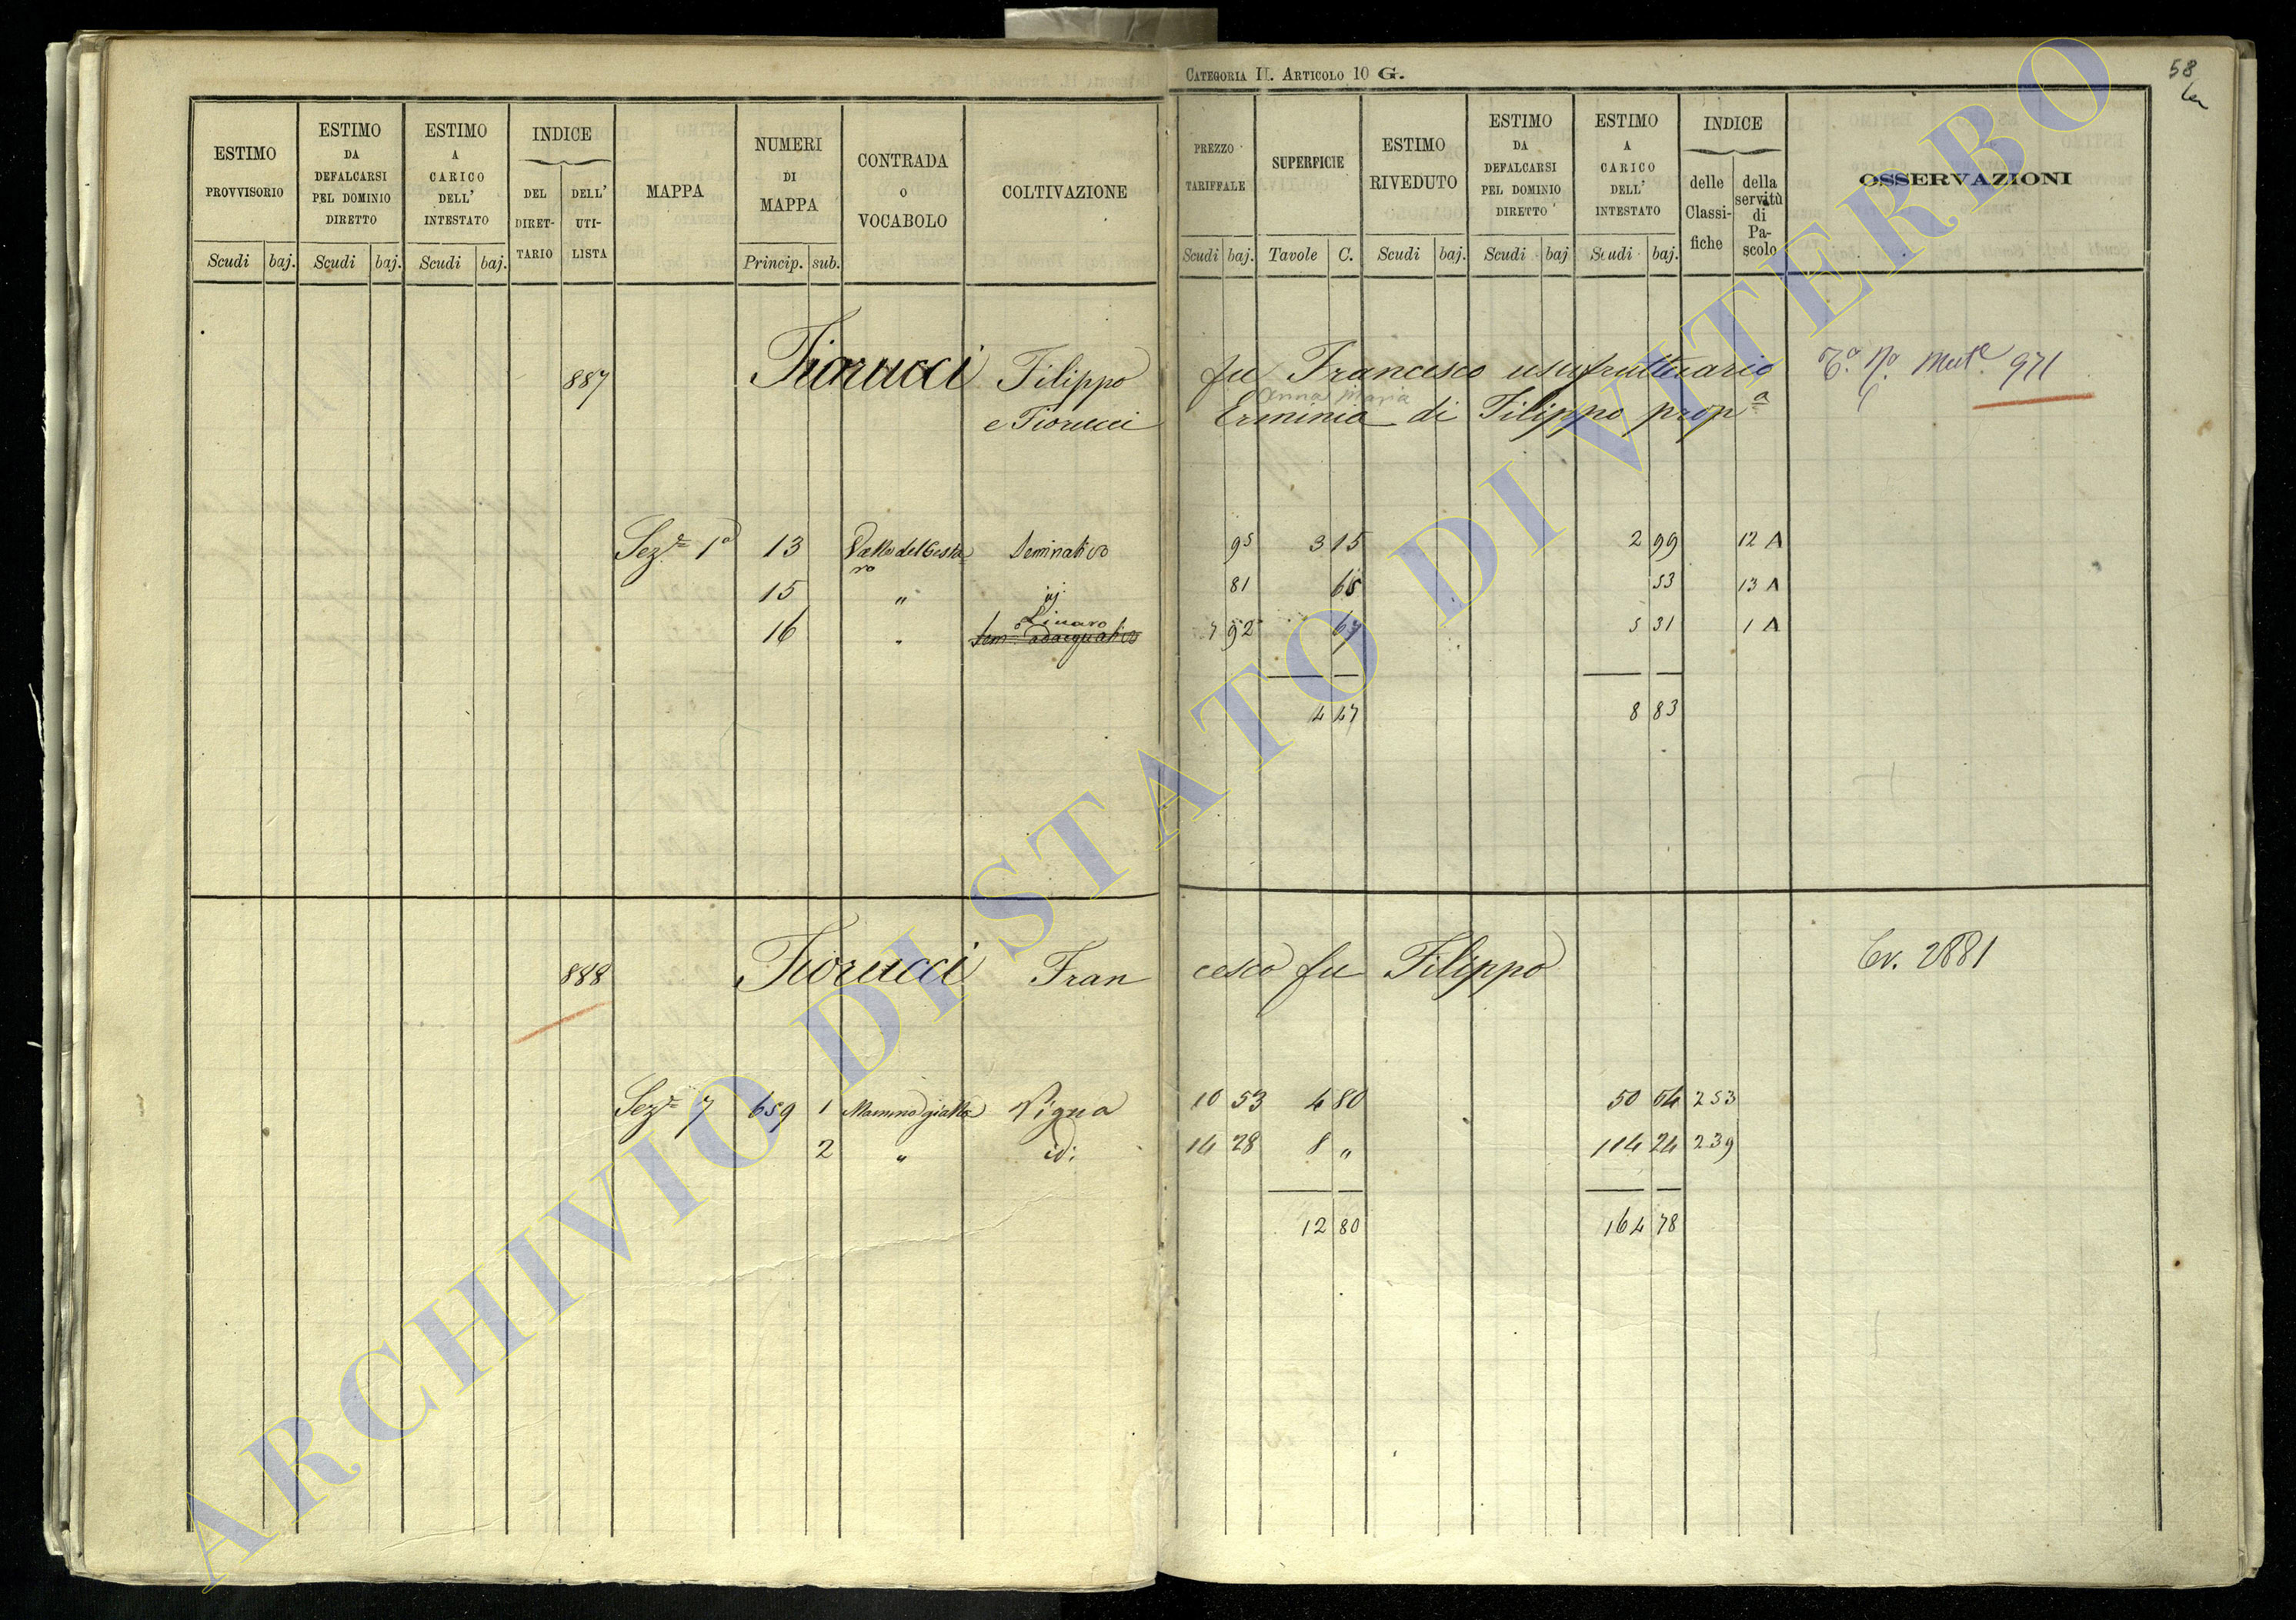 CATEGORIA II. ARTICOLO 10 G.
58
ESTIMO PROVVISORIO
Scudi baj.
ESTIMO DA DEFALCARSI PEL DOMINIO DIRETTO
Scudi baj.
ESTIMO A CARICO DELL' INTESTATO
Scudi baj.
INDICE
DEL DIRET-TARIO
DELL' UTI-LISTA
MAPPA
NUMERI DI MAPPA
Princip. sub.
CONTRADA o VOCABOLO
COLTIVAZIONE
PREZZO TARIFFALE
Scudi baj.
SUPERFICIE
Tavole C.
ESTIMO RIVEDUTO
Scudi baj.
ESTIMO DA DEFALCARSI PEL DOMINIO DIRETTO
Scudi baj
ESTIMO A CARICO DELL' INTESTATO
Scudi baj.
INDICE
delle Classi-fiche
della servitù di Pa-scolo
OSSERVAZIONI
887 Fiorucci Filippo fu Francesco usufruttuario 971
Anna Maria
e Fiorucci Erminia di Filippo prop.a
Sez.e 1a 13 Seminativo 95 3 15 2 99 12 A
15 " 81 65 53 13 A
Linaro
16 " 7 92 67 5 31 1 A
4 47 8 83
888 Fiorucci Fran cesco fu Filippo 2881
Sez.e 7 659 1 Mammagialla Vigna 10 53 4 80 50 54 253
2 " id: 14 28 8 " 114 24 239
12 80 164 78
ARCHIVIO DI STATO DI VITERBO